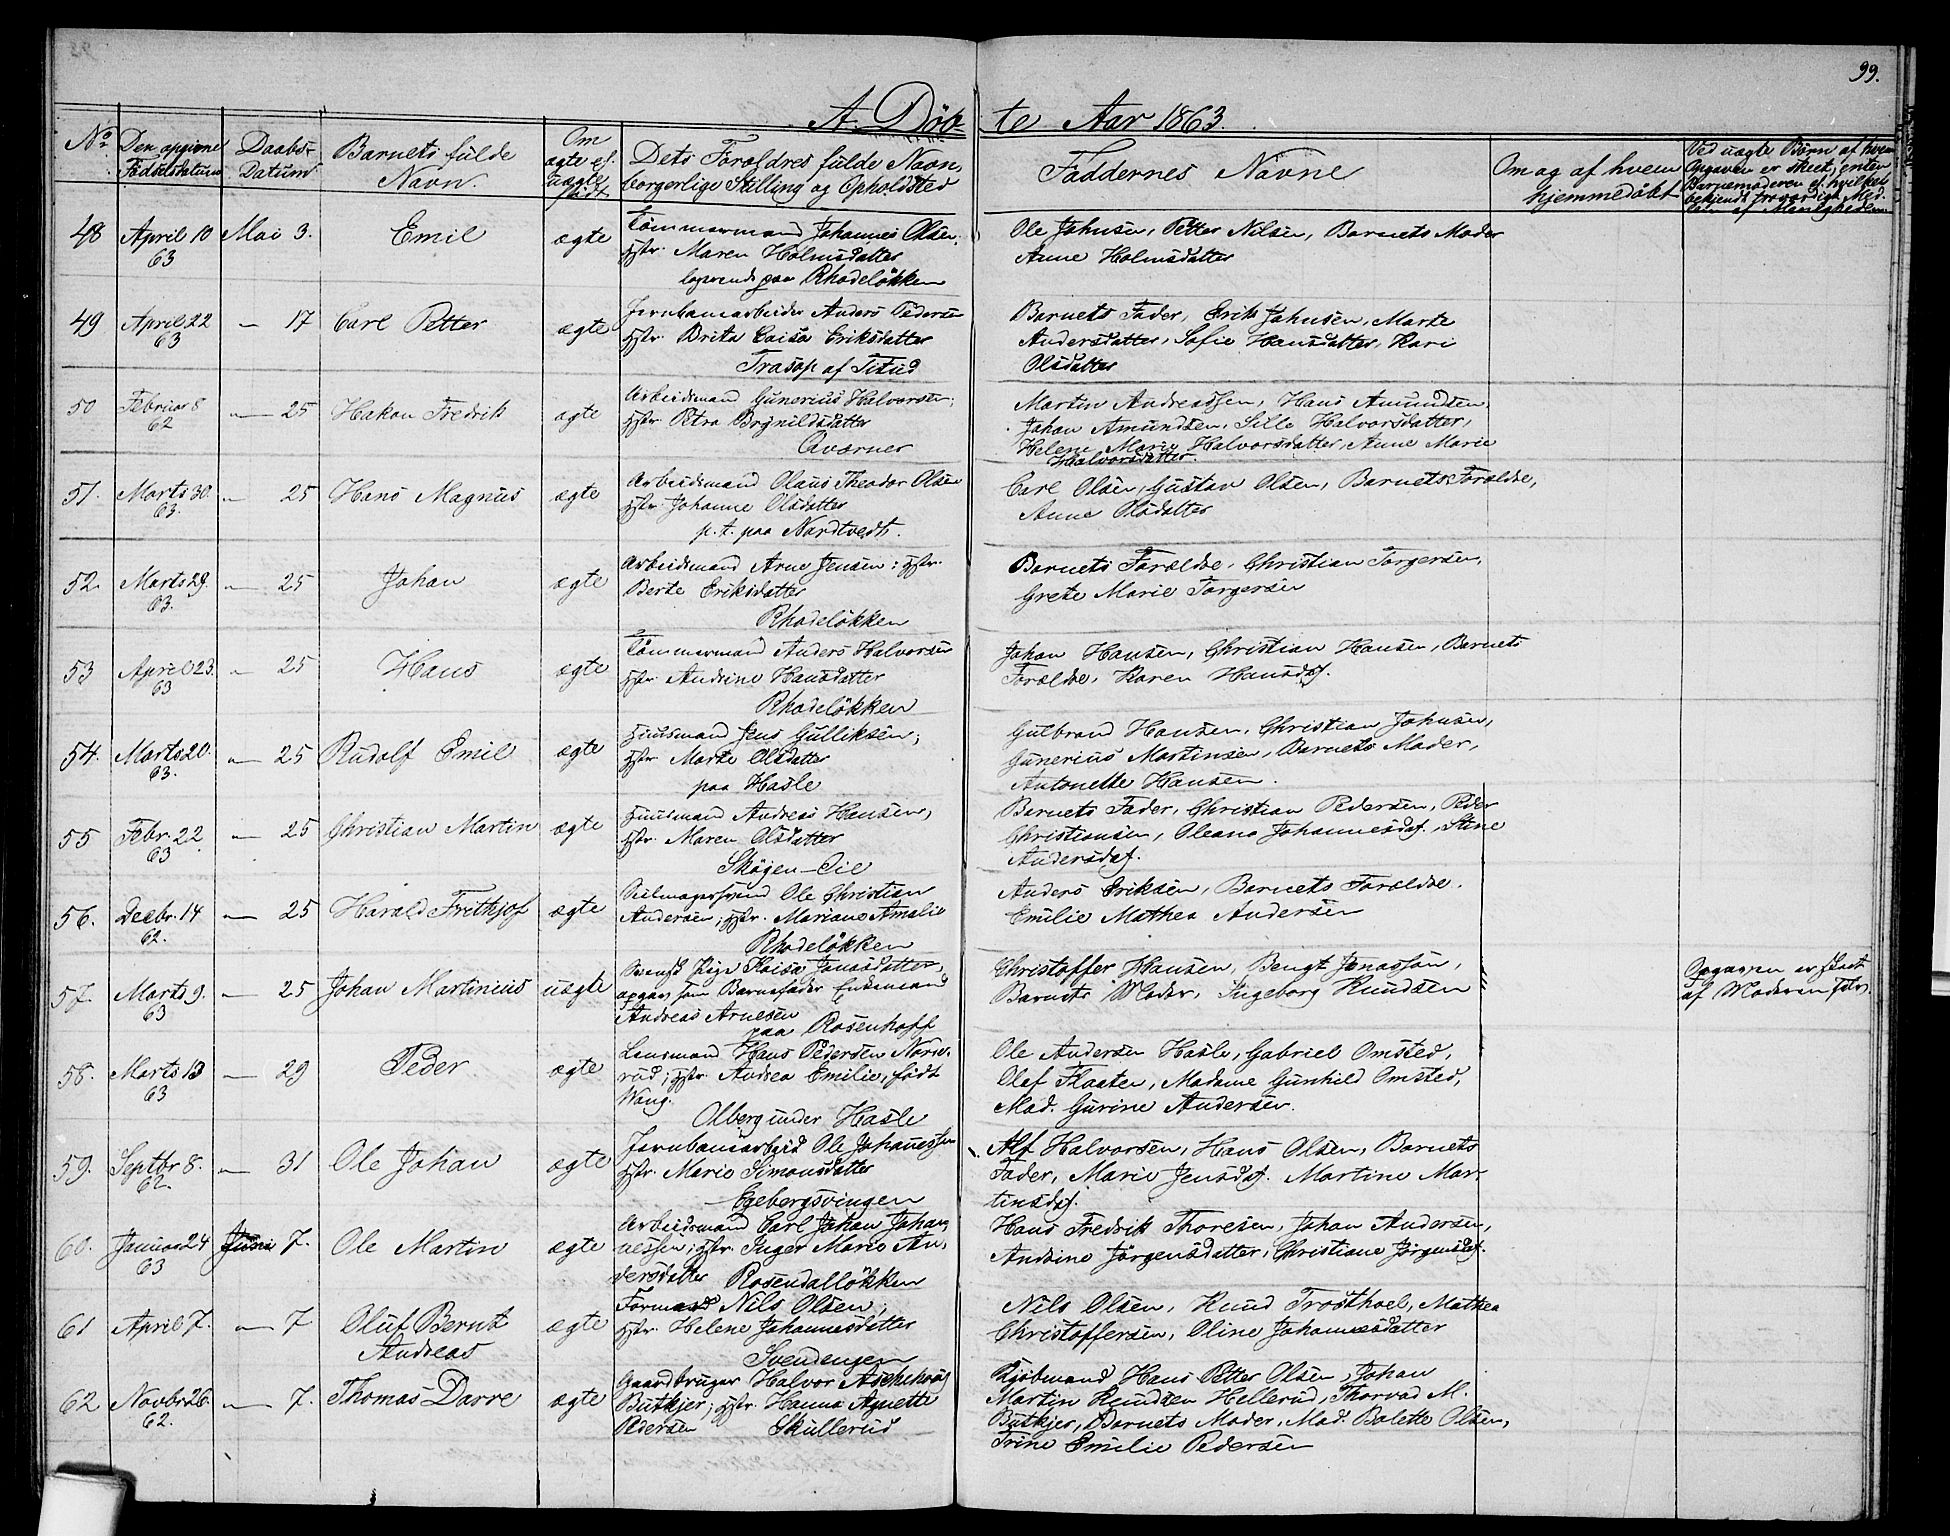 99.
A. Döbte Aar 1863.
No.
Den opgivne Fødselsdatum
Daabs-Datum
Barnets fulde Navn.
Om ægte el. uægte født
Dets Forældres fulde Navn, borgerlige Stilling og Opholdsted
Faddernes Navne
Om og af hvem hjemmedöbt
Ved uægte Börn af hvem Opgaven er skeet, enten Barnemoderen el. hvilket bekjendt troværdigt Medlem af Menigheden
48 April 10 63 Mai 3. Emil ægte
Tömmermand Johannes Olsen,
Hstr. Maren Holmsdatter
logerende paa Rhodeløkken
Ole Johnsen, Petter Nilsen, Barnets Moder
Anne Holmsdatter
49 April 22 63 — 17 Carl Petter ægte
Jernbanearbeider Anders Pedersen
Hstr. Brita Caisa Eriksdatter
Trasop af
Barnets Fader, Erik Johnsen, Marte
Andersdatter, Sofie Hansdatter, Kari
Olsdatter
50 Februar 8 62 — 25 Hakon Fredrik ægte
Arbeidsmand Gunerius Halvorsen;
Hstr. Petra Brynildsdatter
Qværner
Martin Andreassen, Hans Amundsen,
Johan Amundsen, Sille Halvorsdatter,
Helene Marie Halvorsdatter, Anne Marie
Halvorsdatter.
51. Marts 30. 63. — 25 Hans Magnus ægte
Arbeidsmand Olaus Theodor Olsen
Hstr. Johanne Olsdatter
p. t. paa Nordtvedt.
Carl Olsen, Gustav Olsen, Barnets Forældre,
Anne Olsdatter
52. Marts 29. 63. — 25 Johan ægte
Arbeidsmand Arne Jensen; Hstr.
Berte Eriksdatter
Rhodeløkken
Barnets Forældre, Christian Torgersen,
Grete Marie Torgersen
53 April 23. 63 — 25 Hans ægte
Tömmermand Anders Halvorsen
Hstr. Andrine Hansdatter
Rhodeløkken
Johan Hansen, Christian Hansen, Barnets
Forældre, Karen Hansdat.
54. Marts 20 63. — 25 Rudolf Emil ægte
Huusmand Jens Gulliksen;
Hstr. Marte Olsdatter
paa Hasle
Gulbrand Hansen, Christian Johnsen,
Gunerius Martinsen, Barnets Moder,
Antonette Hansen.
55 Febr. 22 63 — 25 Christian Martin ægte
Huusmand Andreas Hansen,
Hstr. Maren Olsdatter
Skøgen-Eie
Barnets Fader, Christian Pedersen, Peder
Christiansen, Oleana Johannesdat. Stine
Andersdat.
56. Decbr. 14 62. — 25 Harald Frithjof ægte
Seilmagersvend Ole Christian
Andersen; Hstr. Mariane Amalie
Rhodeløkken
Anders Eriksen, Barnets Forældre.
Emilie Mathea Andersen
57. Marts 9. 63 — 25 Johan Martinius uægte
Svensk Pige Kaisa Jonasdatter,
opgav som Barnefader Enkemand
Andreas Arnesen
paa Rosenhoff
Christoffer Hansen, Bengt Jonasson,
Barnets Moder, Ingeborg Knudsen
Opgaven er skeet
af Moderen selv.
58. Marts 13 63 — 29 Peder ægte
Lensmand Hans Pedersen Norderud;
Hstr. Andrea Emilie, født
Wang.
Olberg under Hasle
Ole Andersen Hasle, Gabriel Omsted,
Olof Flaaten, Madame Gunhild Omsted,
Mad. Gurine Andersen.
59. Septbr 8. 62. — 31 Ole Johan ægte
Jernbanearbeid. Ole Johannessen
Hstr. Marie Simonsdatter
Egebergsvingen
Alf Halvorsen, Hans Olsen, Barnets
Fader, Marie Jensdat. Martine Mar-
tinsdat.
60. Januar 24 63 Juni 7. Ole Martin ægte
Arbeidsmand Carl Johan Johan-
nessen; Hstr. Inger Marie An-
dersdatter Rosendalløkken
Hans Fredrik Thoresen, Johan Andersen,
Andrine Jörgensdatter, Christiane Jörgensdat.
61 April 7. — 7 Oluf Bernt Andreas ægte
Formand Nils Olsen;
Hstr. Helene Johannesdatter
Svendengen
Nils Olsen, Knud Trosthoel, Mathea
Christoffersen, Oline Johannesdatter
62 Novbr 26. 62. — 7. Thomas Darre ægte
Gaardbruger Halvor Aschehoug
Butkjer; Hstr. Hanna Agnette
Pedersen Skullerud
Kjöbmand Hans Petter Olsen, Johan
Martin Knudsen Hellerud, Thorvad M.
Butkjer, Barnets Moder, Mad. Bolette Olsen,
Trine Emilie Pedersen